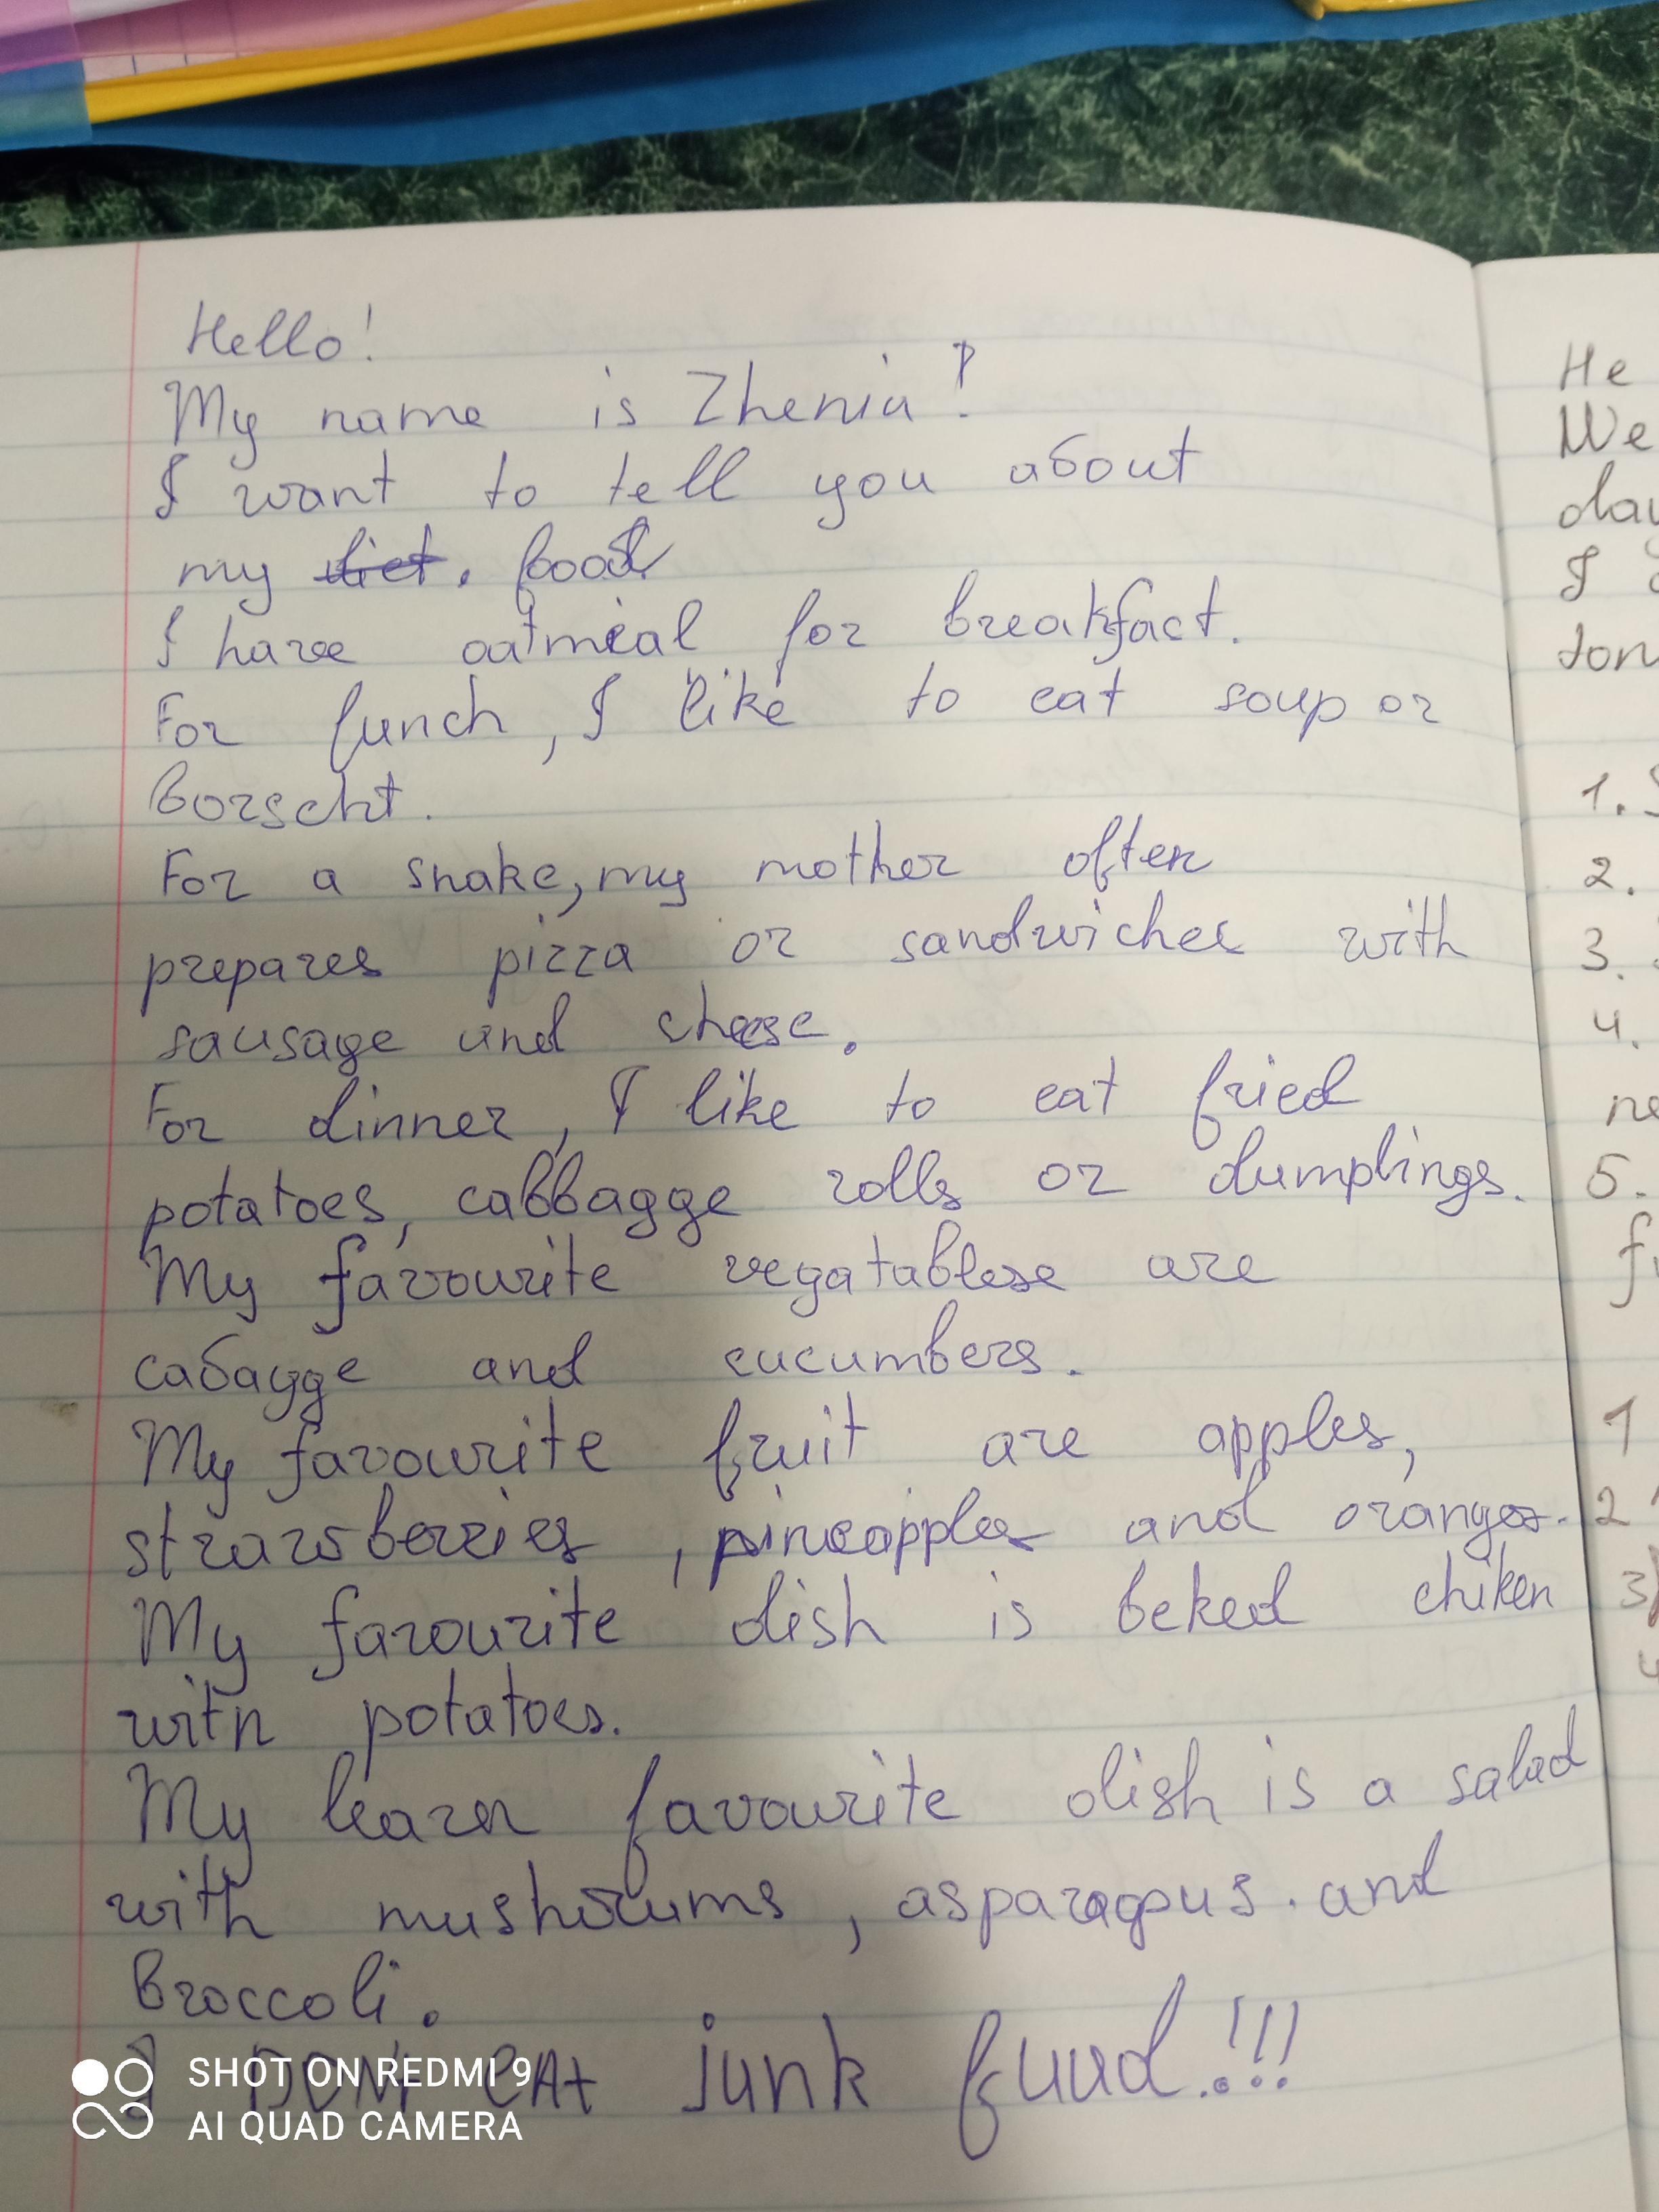 Hello!
My name is Zhenia!
I want to tell you about
my diet. food
I have oatmeal for breakfact.
For lunch, I like to eat soup or
borscht.
For a snake, my mother often
prepares pizza or sandwiches with
sausage and cheese.
For dinner, I like to eat fried
potatoes, cabbagge rolls or dumplings.
My favourite vegatablese are
cabagge and cucumbers.
My favourite fruit are apples,
strawberries, pineapples and oranges.
My favourite dish is beked chiken
with potatoes.
My learn favourite dish is a salad
with mushrums, asparagous. and
broccoli.
I DON'T EAt junk fuud!!!
He
We
day
I
ton
1.
2.
3.
4.
ne
5.
1
2
3)
4
SHOT ON REDMI 9
AI QUAD CAMERA